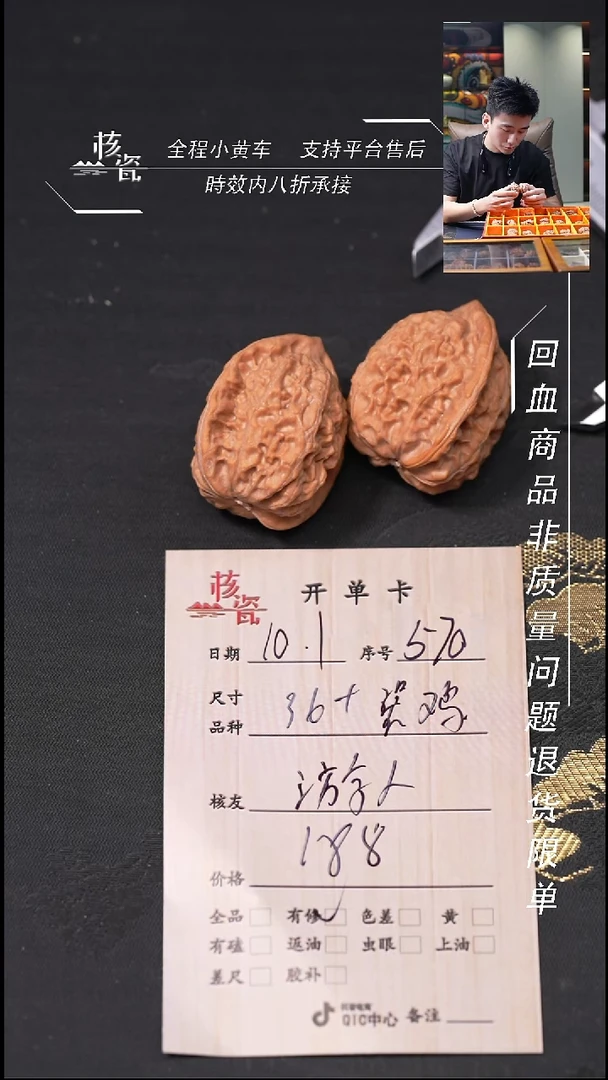 核瓷
全程小黄车 支持平台售后
時效内八折承接
回血商品非质量问题退货限单
核瓷
开单卡
日期 10.1 序号 570
尺寸
品种 36+
核友
价格 188
全品 有修 色差 黄
有磕 返油 虫眼 上油
差尺 胶补
QIC中心 备注